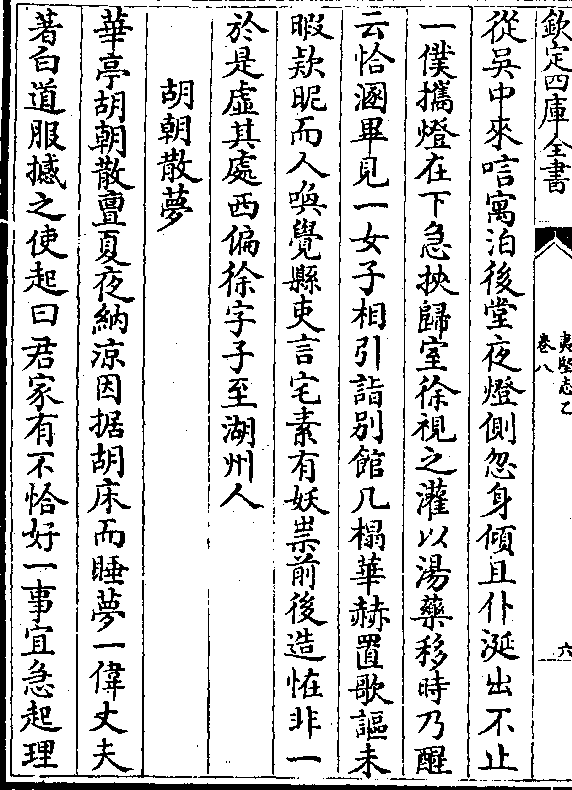 欽定四庫全書
夷堅志乙
卷八
六
從吳中來唁寓泊後堂夜燈側忽身傾且仆涎出不止
一僕攜燈在下急挾歸室徐視之灌以湯藥移時乃醒
云恰溷畢見一女子相引詣别館几榻華赫置歌謳未
暇欵昵而人喚覺縣吏言宅素有妖祟前後造恠非一
於是虛其處西偏徐字子至湖州人
胡朝散夢
華亭胡朝散亶夏夜納凉因据胡床而睡夢一偉丈夫
著白道服撼之使起曰君家有不恰好一事宜急起理